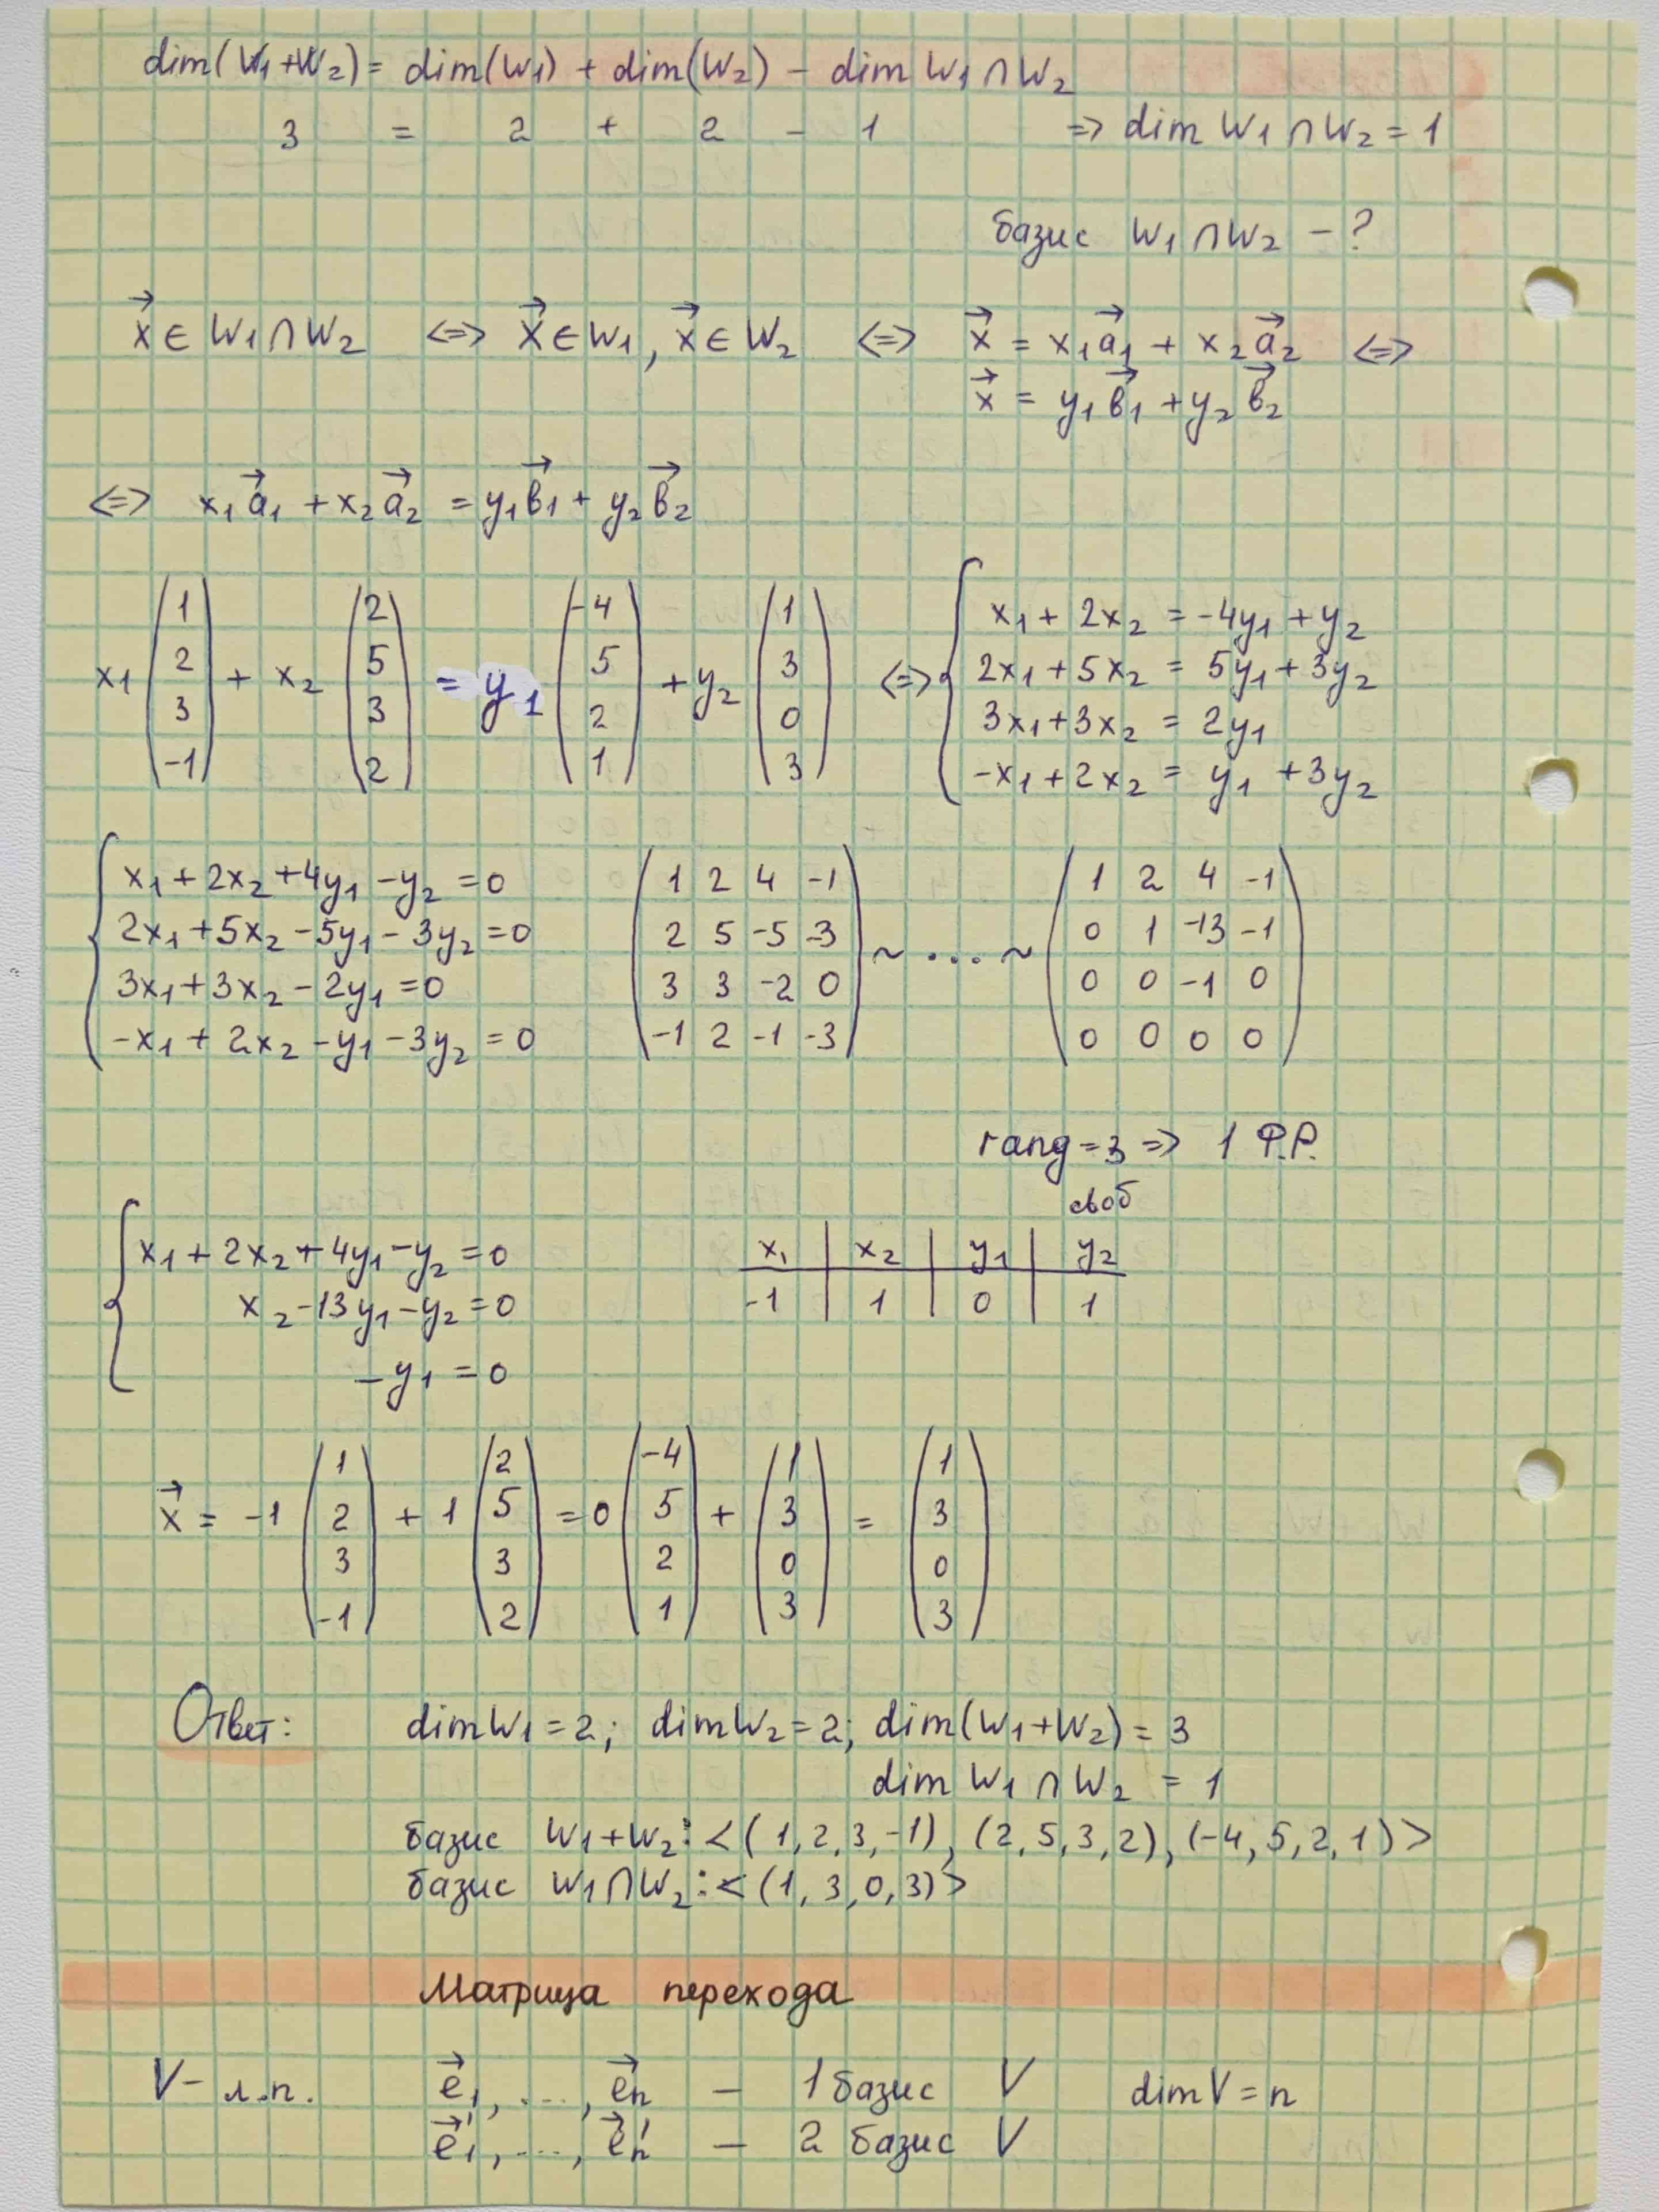 dim(W₁+W₂) = dim(W₁) + dim(W₂) − dim W₁∩W₂
3 = 2 + 2 − 1 => dim W₁∩W₂ = 1
базис W₁∩W₂ − ?
x⃗ ∈ W₁∩W₂ <=> x⃗ ∈ W₁, x⃗ ∈ W₂ <=> x⃗ = x₁a⃗₁ + x₂a⃗₂ <=>
x⃗ = y₁в⃗₁ + y₂в⃗₂
<=> x₁a⃗₁ + x₂a⃗₂ = y₁в⃗₁ + y₂в⃗₂
x₁ (1 2 3 -1) + x₂ (2 5 3 2) = y₁ (-4 5 2 1) + y₂ (1 3 0 3) <=>
{ x₁ + 2x₂ = -4y₁ + y₂
2x₁ + 5x₂ = 5y₁ + 3y₂
3x₁ + 3x₂ = 2y₁
-x₁ + 2x₂ = y₁ + 3y₂
{ x₁ + 2x₂ + 4y₁ − y₂ = 0
2x₁ + 5x₂ − 5y₁ − 3y₂ = 0
3x₁ + 3x₂ − 2y₁ = 0
-x₁ + 2x₂ − y₁ − 3y₂ = 0
( 1 2 4 -1
2 5 -5 -3
3 3 -2 0
-1 2 -1 -3 ) ~ ... ~
( 1 2 4 -1
0 1 -13 -1
0 0 -1 0
0 0 0 0 )
rang = 3 => 1 Ф.Р.
своб
{ x₁ + 2x₂ + 4y₁ − y₂ = 0
x₂ − 13y₁ − y₂ = 0
− y₁ = 0
x₁ | x₂ | y₁ | y₂
-1 | 1 | 0 | 1
x⃗ = -1 (1 2 3 -1) + 1 (2 5 3 2) = 0 (-4 5 2 1) + (1 3 0 3) = (1 3 0 3)
Ответ: dim W₁ = 2; dim W₂ = 2; dim(W₁+W₂) = 3
dim W₁∩W₂ = 1
базис W₁+W₂: <(1,2,3,-1), (2,5,3,2), (-4,5,2,1)>
базис W₁∩W₂: <(1,3,0,3)>
Матрица перехода
V − л.п. e⃗₁, ..., e⃗n − 1 базис V dim V = n
e⃗₁', ..., e⃗n' − 2 базис V